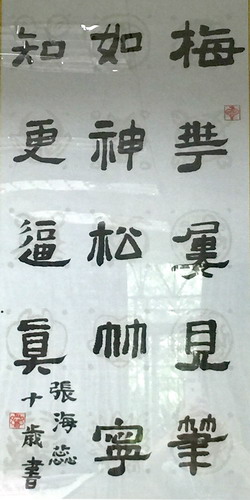 梅華屢見筆
如神松竹寧
知更逼真
張海蕊
十歲書